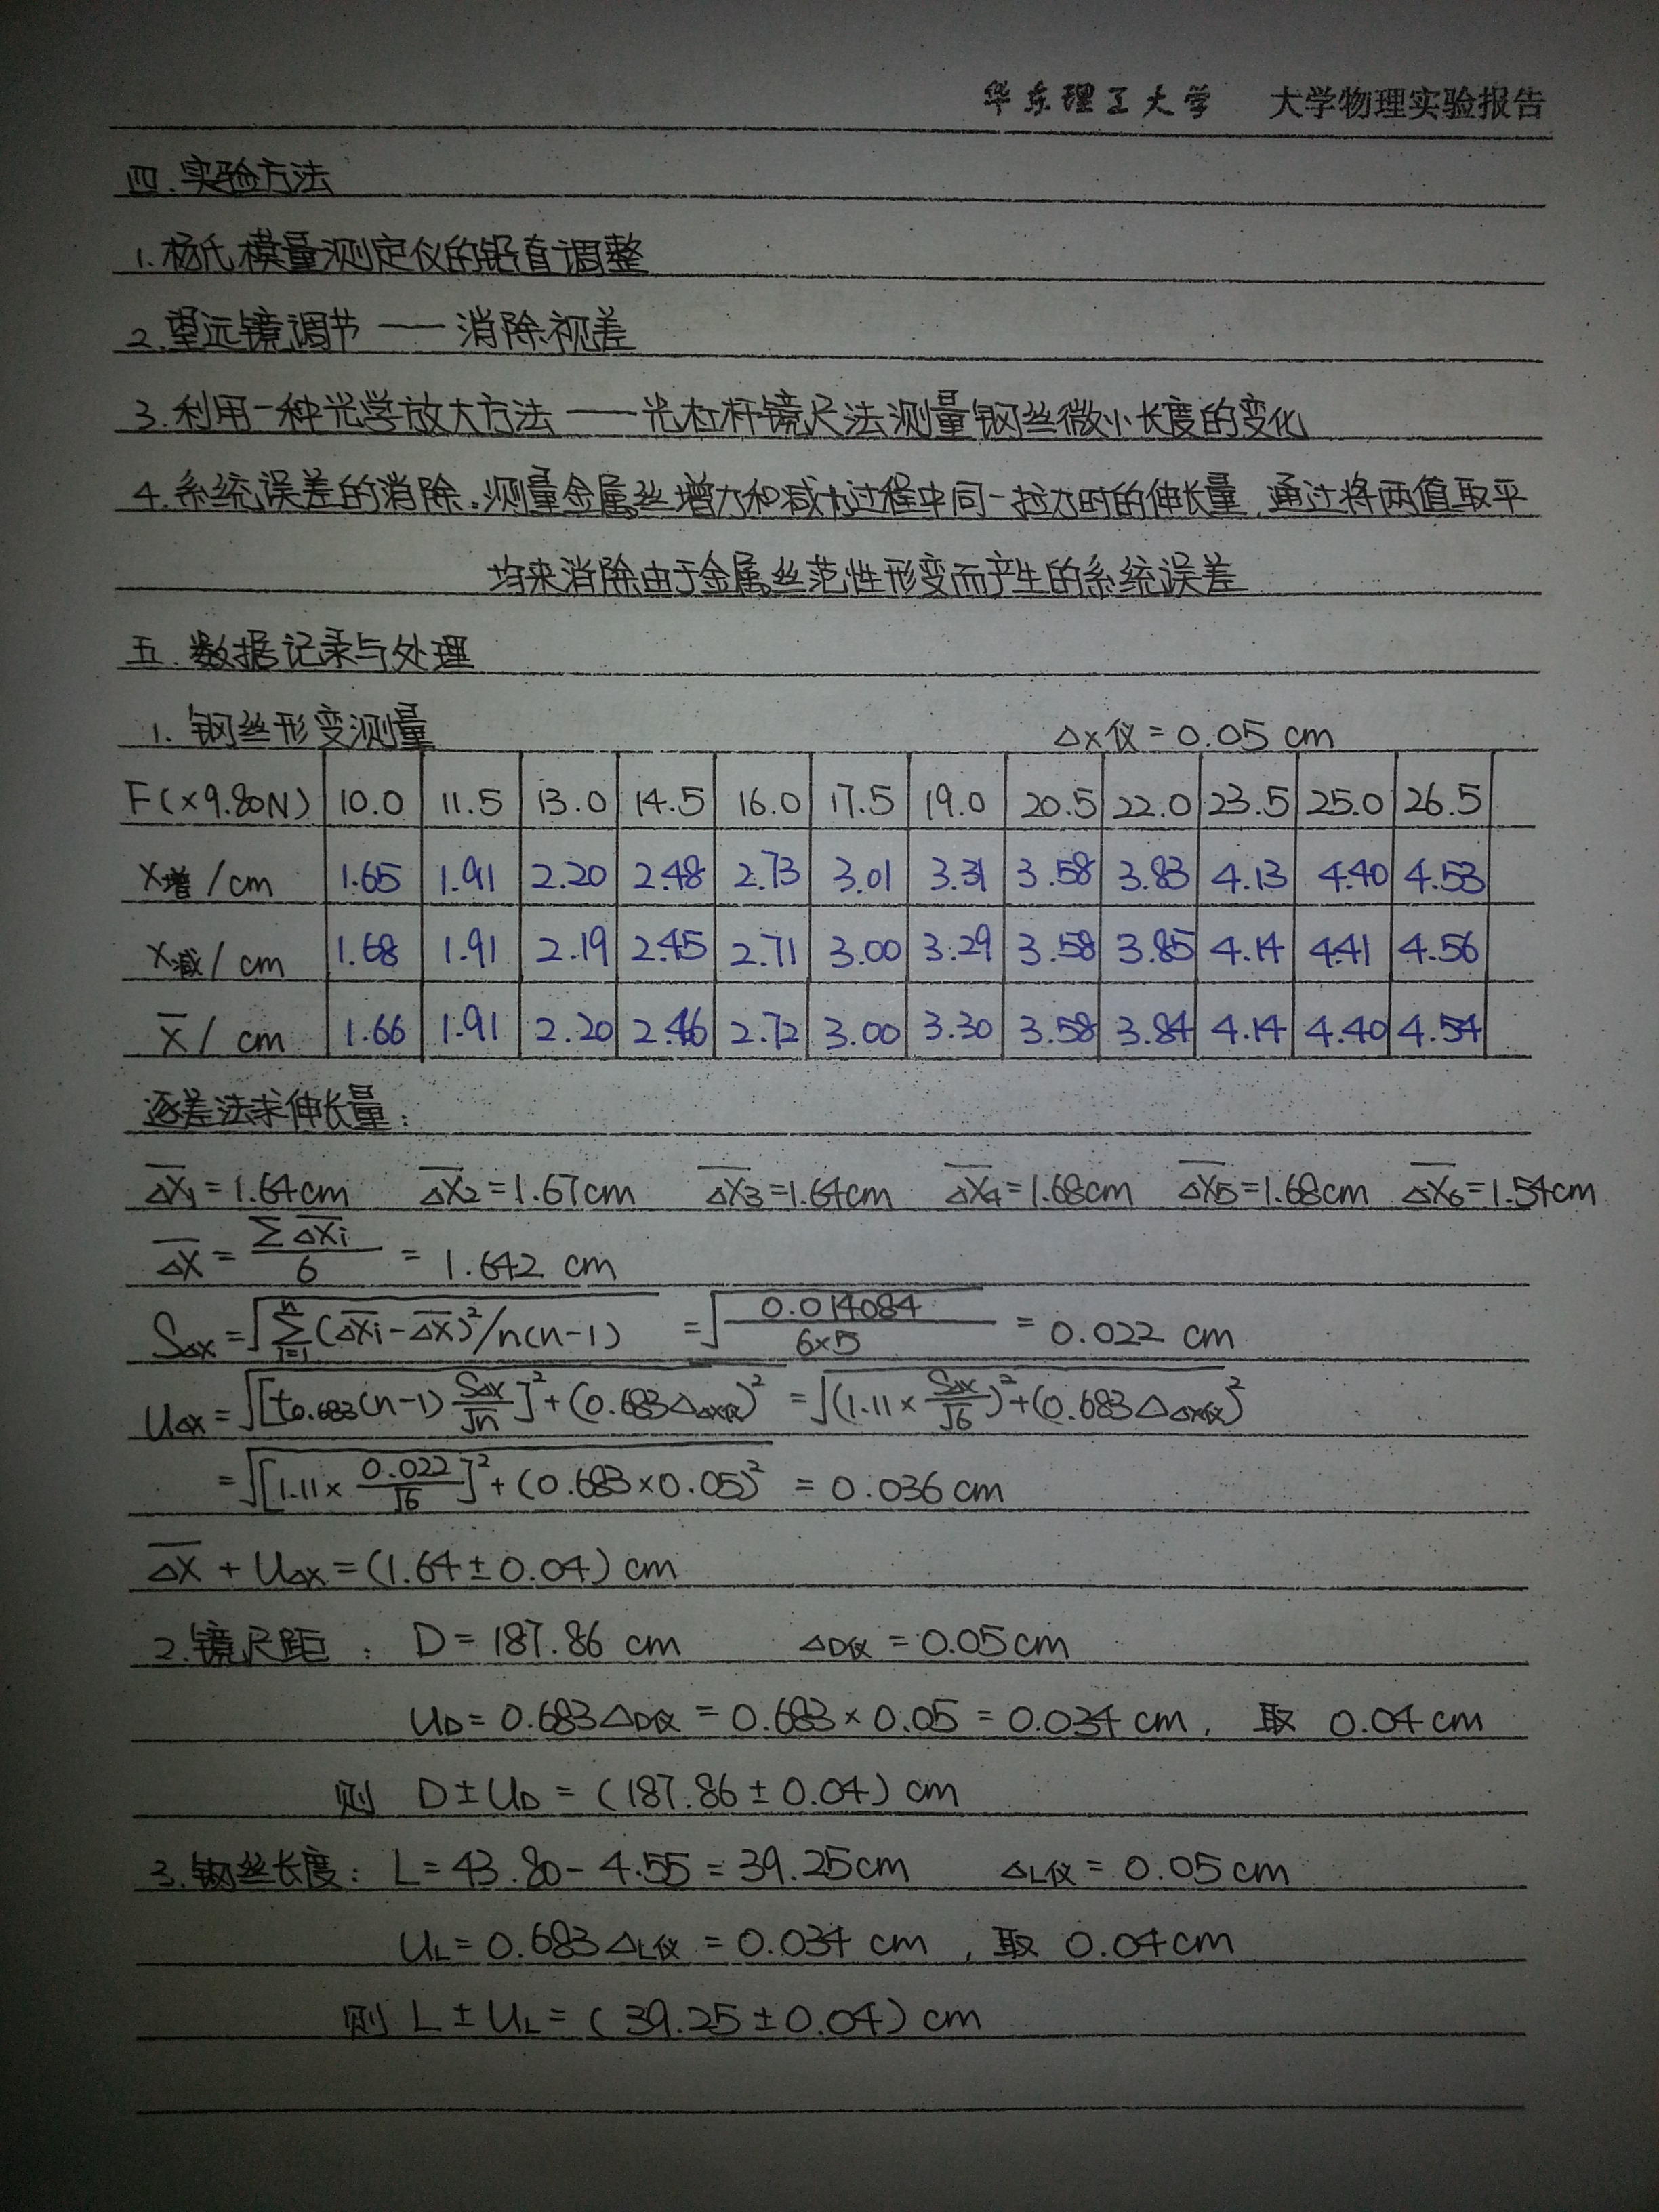 华东理工大学 大学物理实验报告
四.实验方法
1.杨氏模量测定仪的铅直调整
2.望远镜调节——消除视差
3.利用一种光学放大方法——光杠杆镜尺法测量钢丝微小长度的变化
4.系统误差的消除.测量金属丝增力和减力过程中同一拉力时的伸长量,通过将两值取平
均来消除由于金属丝范性形变而产生的系统误差
五.数据记录与处理
1.钢丝形变测量 Δx仪=0.05 cm
F(×9.80N) 10.0 11.5 13.0 14.5 16.0 17.5 19.0 20.5 22.0 23.5 25.0 26.5
X增/cm 1.65 1.91 2.20 2.48 2.73 3.01 3.31 3.58 3.83 4.13 4.40 4.53
X减/cm 1.68 1.91 2.19 2.45 2.71 3.00 3.29 3.58 3.85 4.14 4.41 4.56
X̄/cm 1.66 1.91 2.20 2.46 2.72 3.00 3.30 3.58 3.84 4.14 4.40 4.54
逐差法求伸长量:
ΔX̄₁=1.64cm ΔX̄₂=1.67cm ΔX̄₃=1.64cm ΔX̄₄=1.68cm ΔX̄₅=1.68cm ΔX̄₆=1.54cm
ΔX̄=ΣΔX̄i/6=1.642 cm
SΔX=√(Σⁿᵢ₌₁(ΔX̄i-ΔX̄)²/n(n-1))=√(0.014084/6×5)=0.022 cm
UΔX=√([t0.683(n-1)SΔX/√n]²+(0.683ΔΔX仪)²)=√((1.11×SΔX/√6)²+(0.683ΔΔX仪)²)
=√([1.11×0.022/√6]²+(0.683×0.05)²)=0.036cm
ΔX̄+UΔX=(1.64±0.04)cm
2.镜尺距: D=187.86 cm ΔD仪=0.05cm
UD=0.683ΔD仪=0.683×0.05=0.034cm, 取 0.04cm
则 D±UD=(187.86±0.04)cm
3.钢丝长度: L=43.80-4.55=39.25cm ΔL仪=0.05cm
UL=0.683ΔL仪=0.034 cm, 取 0.04cm
则 L±UL=(39.25±0.04)cm